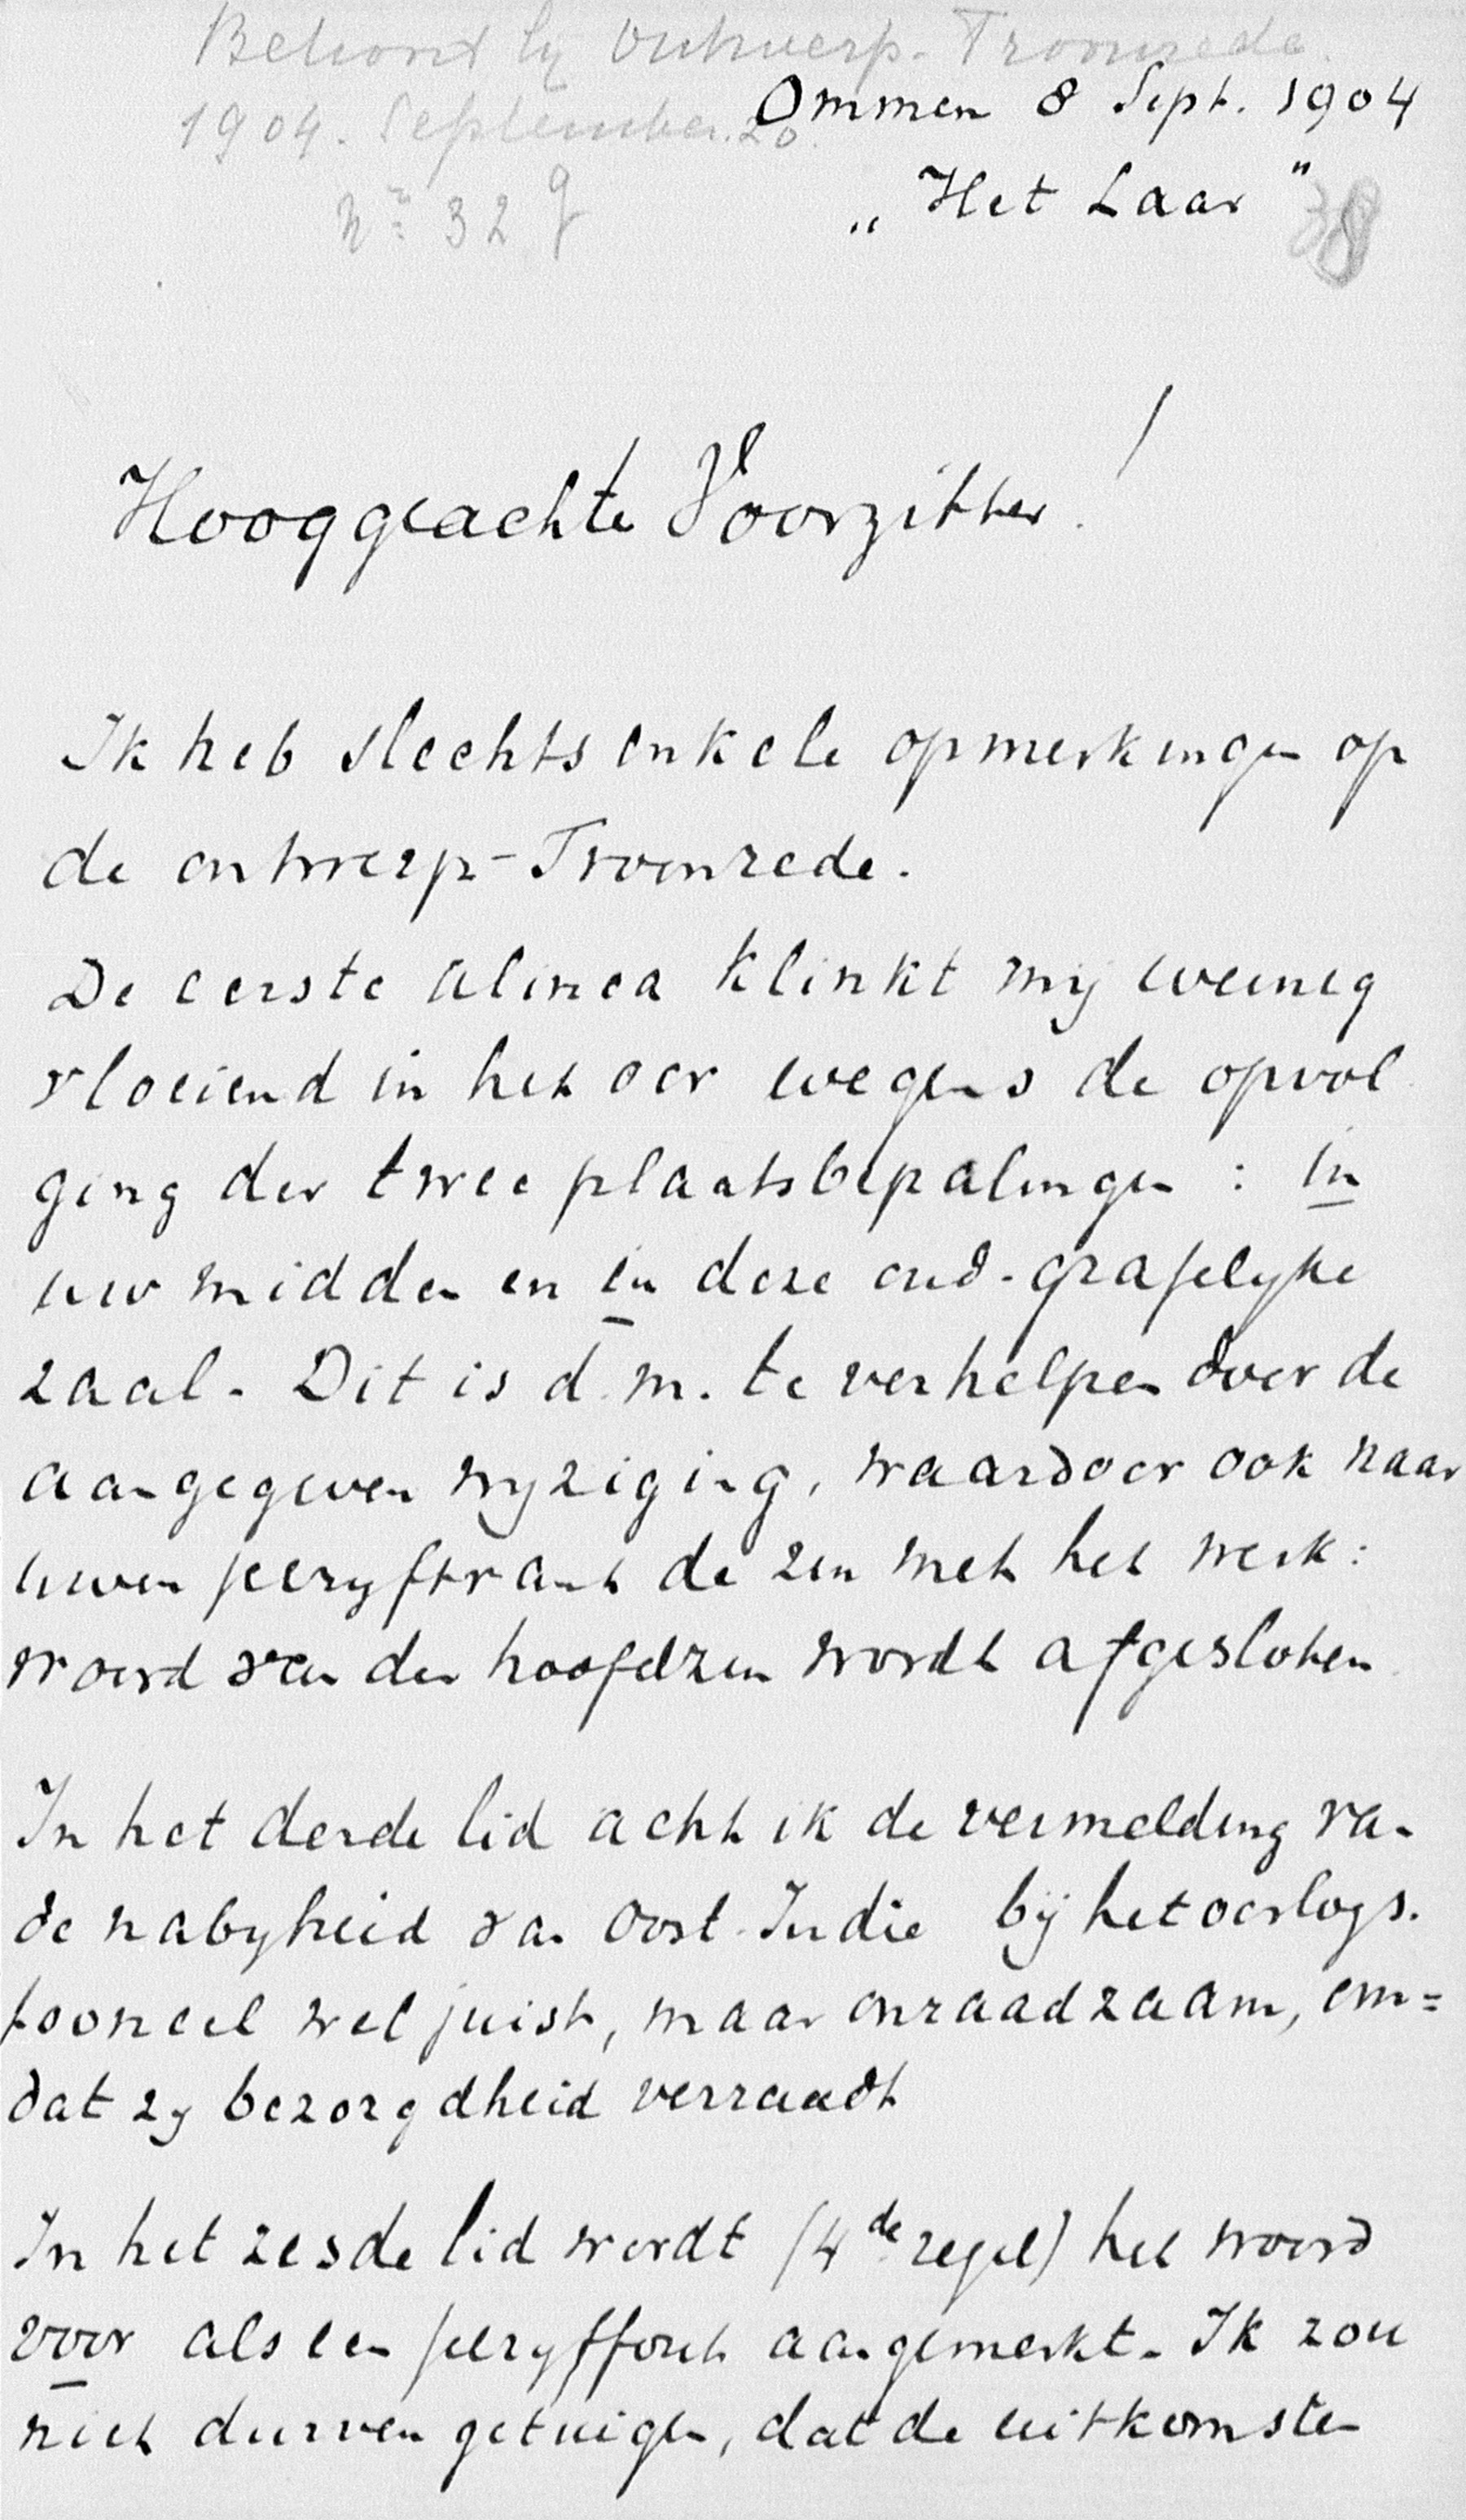 Behoort bij Ontwerp-Troonrede.
1904. September. 20.
No 32 g
Ommen 8 Sept. 1904
„Het Laar"
38
Hooggeachte Voorzitter!
Ik heb slechts enkele opmerkingen op
de ontwerp-Troonrede.
De eerste alinea klinkt mij weinig
vloeiend in het oor wegens de opvol
ging der twee plaatsbepalingen: in
uw midden en in deze oud-grafelyke
zaal. Dit is d.m. te verhelpen door de
aangegeven wyziging, waardoor ook naar
uwen schryftrant de zin met het werk:
woord van den hoofdzin wordt afgesloten.
In het derde lid acht ik de vermelding van
de nabyheid van Oost-Indie bij het oorlogs.
tooneel wel juist, maar onraadzaam, om=
dat zy bezorgdheid verraadt
In het zesde lid wordt (4de regel) het woord
voor als een schryffout aangemerkt. Ik zou
niet durven getuigen, dat de uitkomsten